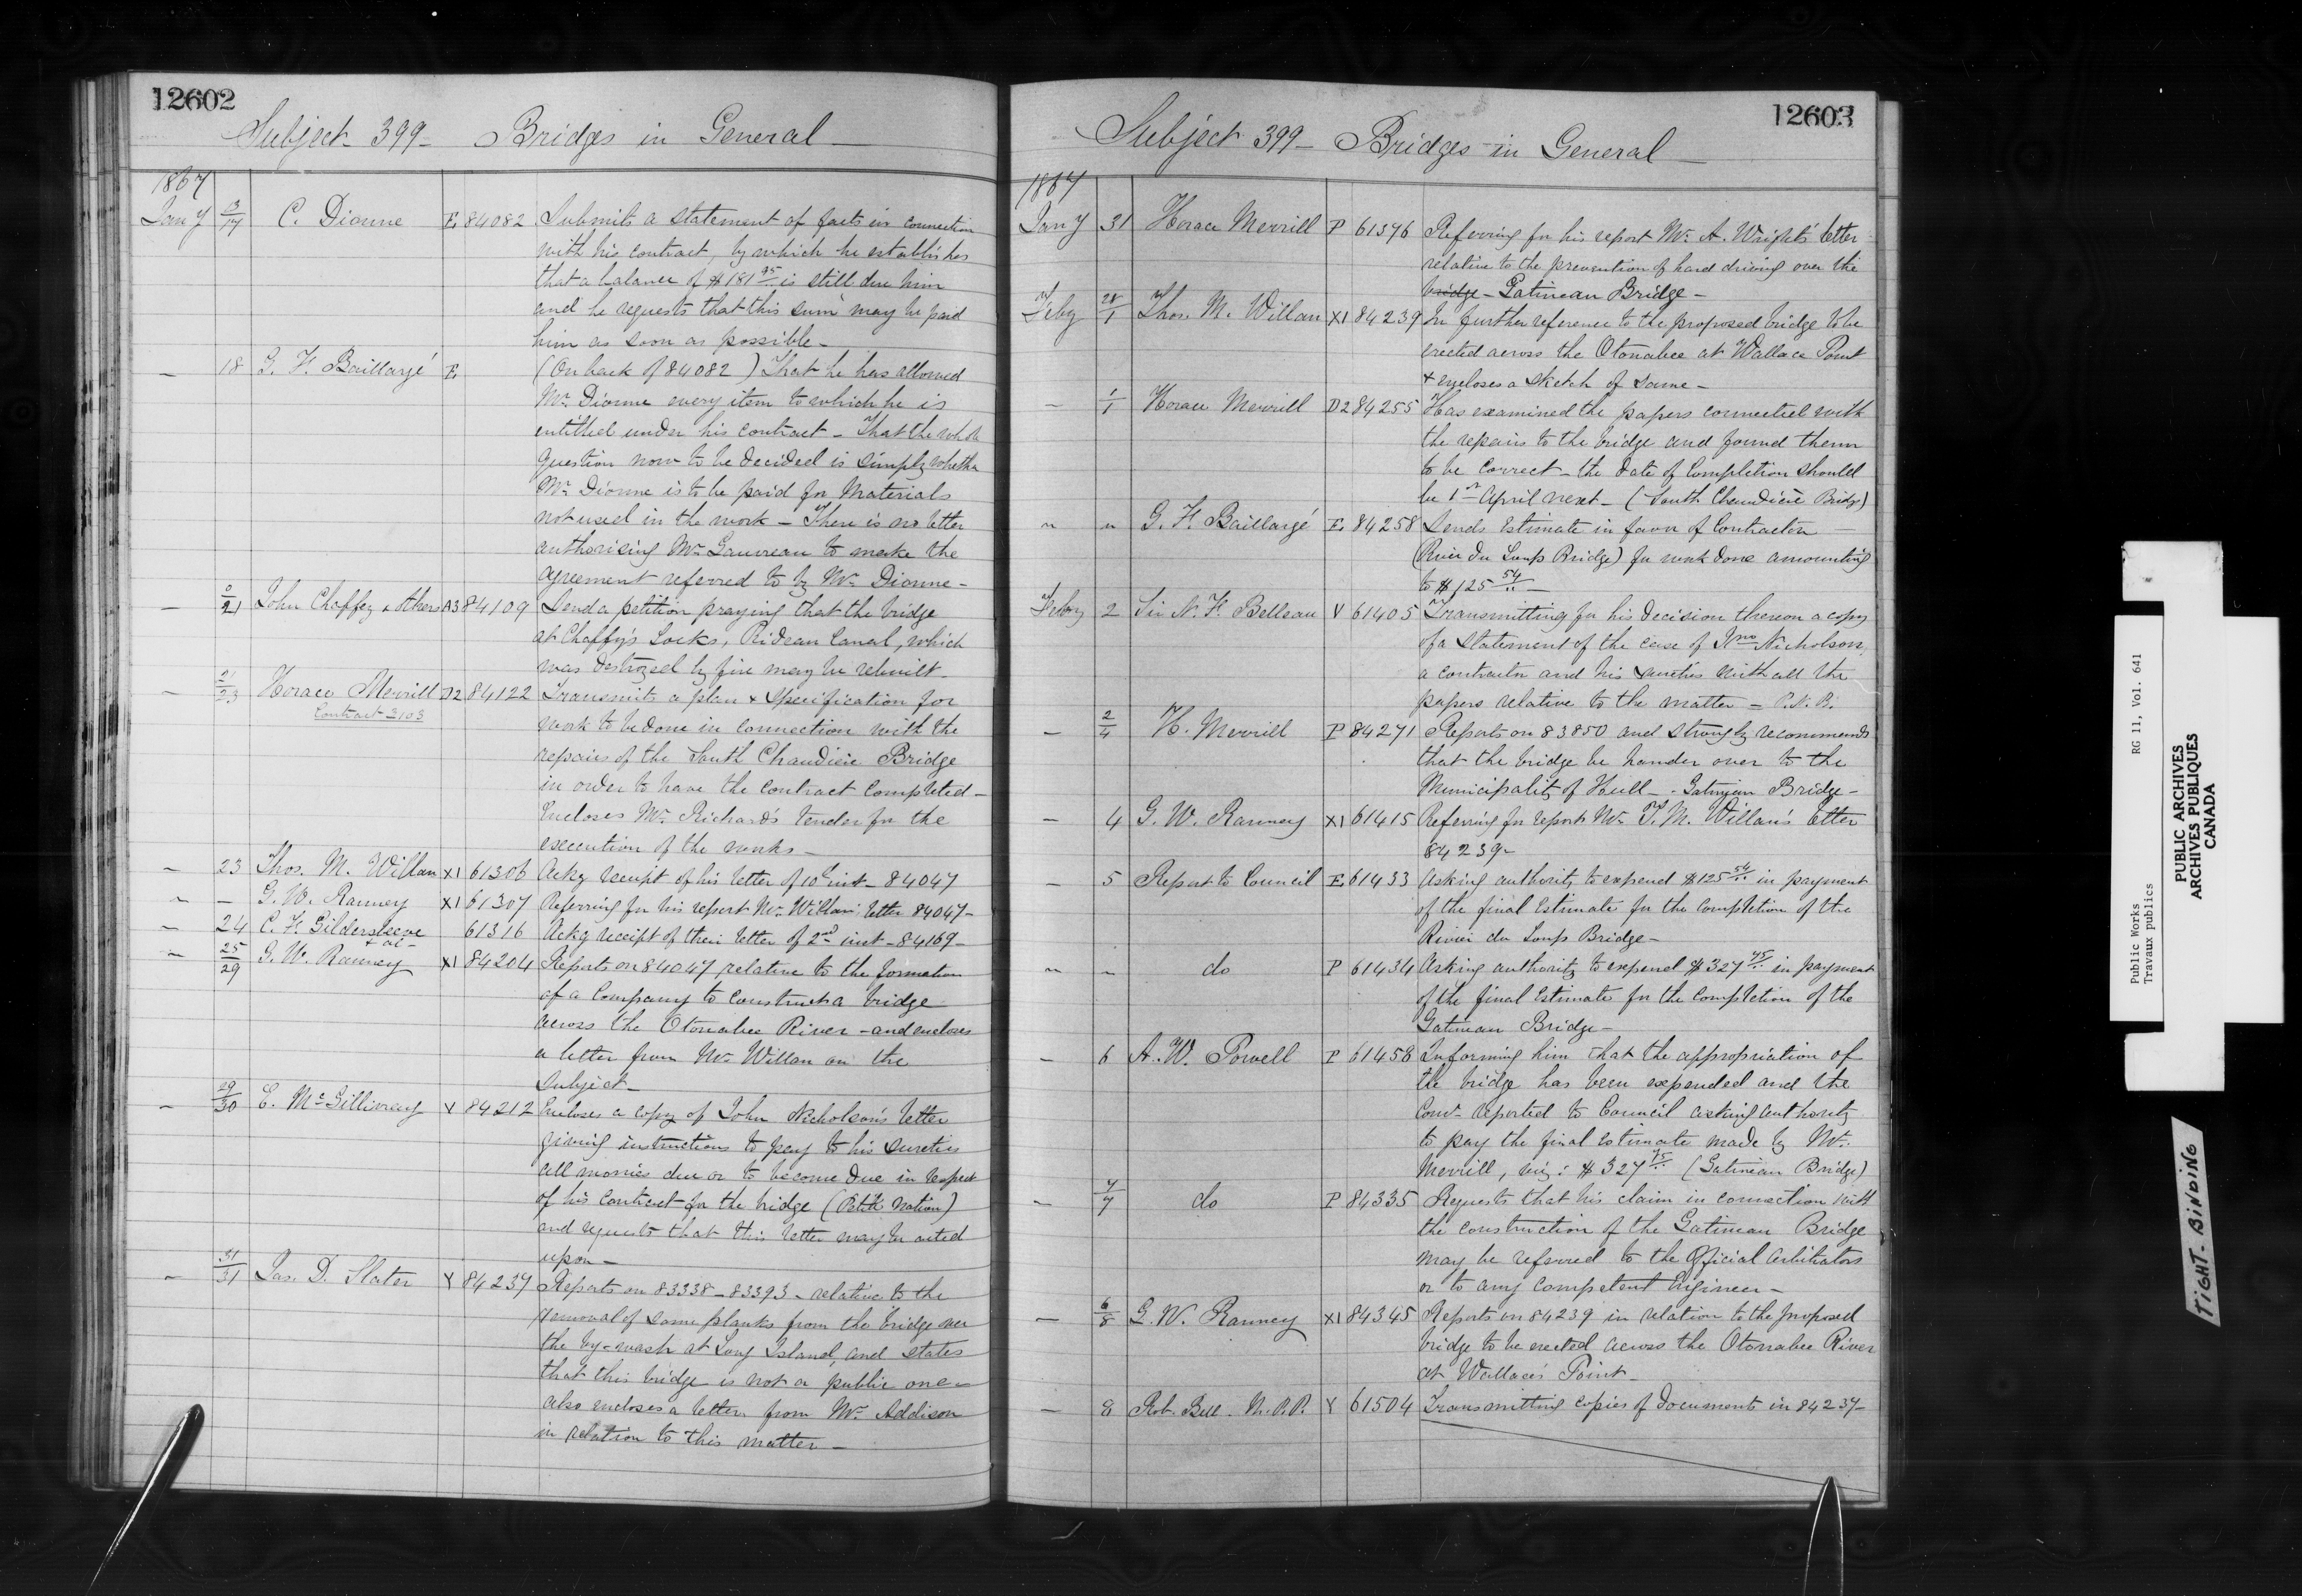 12602
Subject 399 - Bridges in General -
1867
Jany 13/17 C. Dionne E. 84082 Submits a statement of facts in connection
with his contract, by which he establishes
that a balance of $181 95 is still due him
and he requests that this sum may be paid
him as soon as possible -
- 18 G. F. Baillargé E. (On back of 84082) That he has allowed
Mr. Dionne every item to which he is
entitled under his contract - That the whole
question now to be decided is simply whether
Mr. Dionne is to be paid for Materials
not used in the work - There is no letter
authorising Mr. Gauvreau to make the
agreement referred to by Mr. Dionne -
- 0/21 John Chaffey & others A3 84109 Send a petition praying that the bridge
at Chaffy's Locks, Rideau Canal, which
was destroyed by fire may be rebuilt -
- 21/23 Horace Merrill D2 84122 Transmits a plan & specification for
Contract 3103
work to be done in connection with the
repairs of the South Chaudière Bridge
in order to have the contract completed -
Encloses Mr. Richard's tender for the
execution of the works -
- 23 Thos. M. Willan XI 61306 Ackg receipt of his letter of 10th inst - 84047
" - G. W. Ranney XI 61307 Referring for his report Mr. Willan's letter 84047 -
- 24 C. F. Gildersleeve 61316 Ackg receipt of their letter of 2nd inst - 84169 -
& al -
- 25/29 G. W. Ranney XI 84204 Reports on 84047 relative to the formation
of a Company to construct a bridge
across the Otonabee River - and encloses
a letter from Mr. Willan on the
subject -
- 29/30 E. McGillivray Y 84212 Encloses a copy of John Nicholson's letter
giving instructions to pay to his sureties
all monies due or to become due in respect
of his contract for the bridge (Petite Nation)
and requests that this letter may be acted
upon -
- 31/31 Jas. D. Slater Y 84237 Reports on 83338 - 83393 - relative to the
removal of some planks from the bridge over
the by-wash at Long Island, and states
that this bridge is not a public one -
also encloses a letter from Mr. Addison
in relation to this matter -
12603
Subject 399 - Bridges in General -
1867
Jany 31 Horace Merrill P 61376 Referring for his report Mr. A. Wright's letter
relative to the prevention of hard driving over the
bridge - Gatineau Bridge -
Feby 28/1 Thos. M. Willan XI 84239 In further reference to the proposed bridge to be
erected across the Otonabee at Wallace Point
& encloses a sketch of same -
- 1/1 Horace Merrill D2 84255 Has examined the papers connected with
the repairs to the bridge and found them
to be correct - the date of completion should
be 1st April next - (South Chaudière Bridge)
" " G. F. Baillargé E. 84258 Sends Estimate in favor of Contractor
(River du Loup Bridge) for work done amounting
to $125 54 -
Feby 2 Sir N. F. Belleau Y 61405 Transmitting for his decision thereon a copy
of a statement of the case of Jno Nicholson,
a contractor and his sureties with all the
papers relative to the matter - P.N.R.
- 2/4 H. Merrill P 84271 Reports on 83850 and strongly recommends
that the bridge be hander over to the
Municipality of Hull - Gatineau Bridge -
- 4 G. W. Ranney XI 61415 Referring for report Mr. T. M. Willan's letter
84239 -
- 5 Report to Council E. 61433 Asking authority to expend $125 54 in payment
of the final Estimate for the completion of the
River du Loup Bridge -
" " do P 61434 Asking authority to expend $327 75 in payment
of the final Estimate for the completion of the
Gatineau Bridge -
- 6 A. W. Powell P 61458 Informing him that the appropriation of
the bridge has been expended and the
Comr reported to Council asking authority
to pay the final estimate made by Mr.
Merrill, viz: $327 75 (Gatineau Bridge)
- 7/7 do P 84335 Requests that his claim in connection with
the construction of the Gatineau Bridge
may be referred to the Official Arbitrators
or to any competent Engineer -
- 6/8 G. W. Ranney XI 84345 Reports on 84239 in relation to the proposed
bridge to be erected across the Otonabee River
at Wallace's Point -
- 8 Rob. Bell. M.P.P. Y 61504 Transmitting copies of documents in 84237 -
Public Works RG 11, Vol. 641
Travaux publics
PUBLIC ARCHIVES
ARCHIVES PUBLIQUES
CANADA
TIGHT BINDING